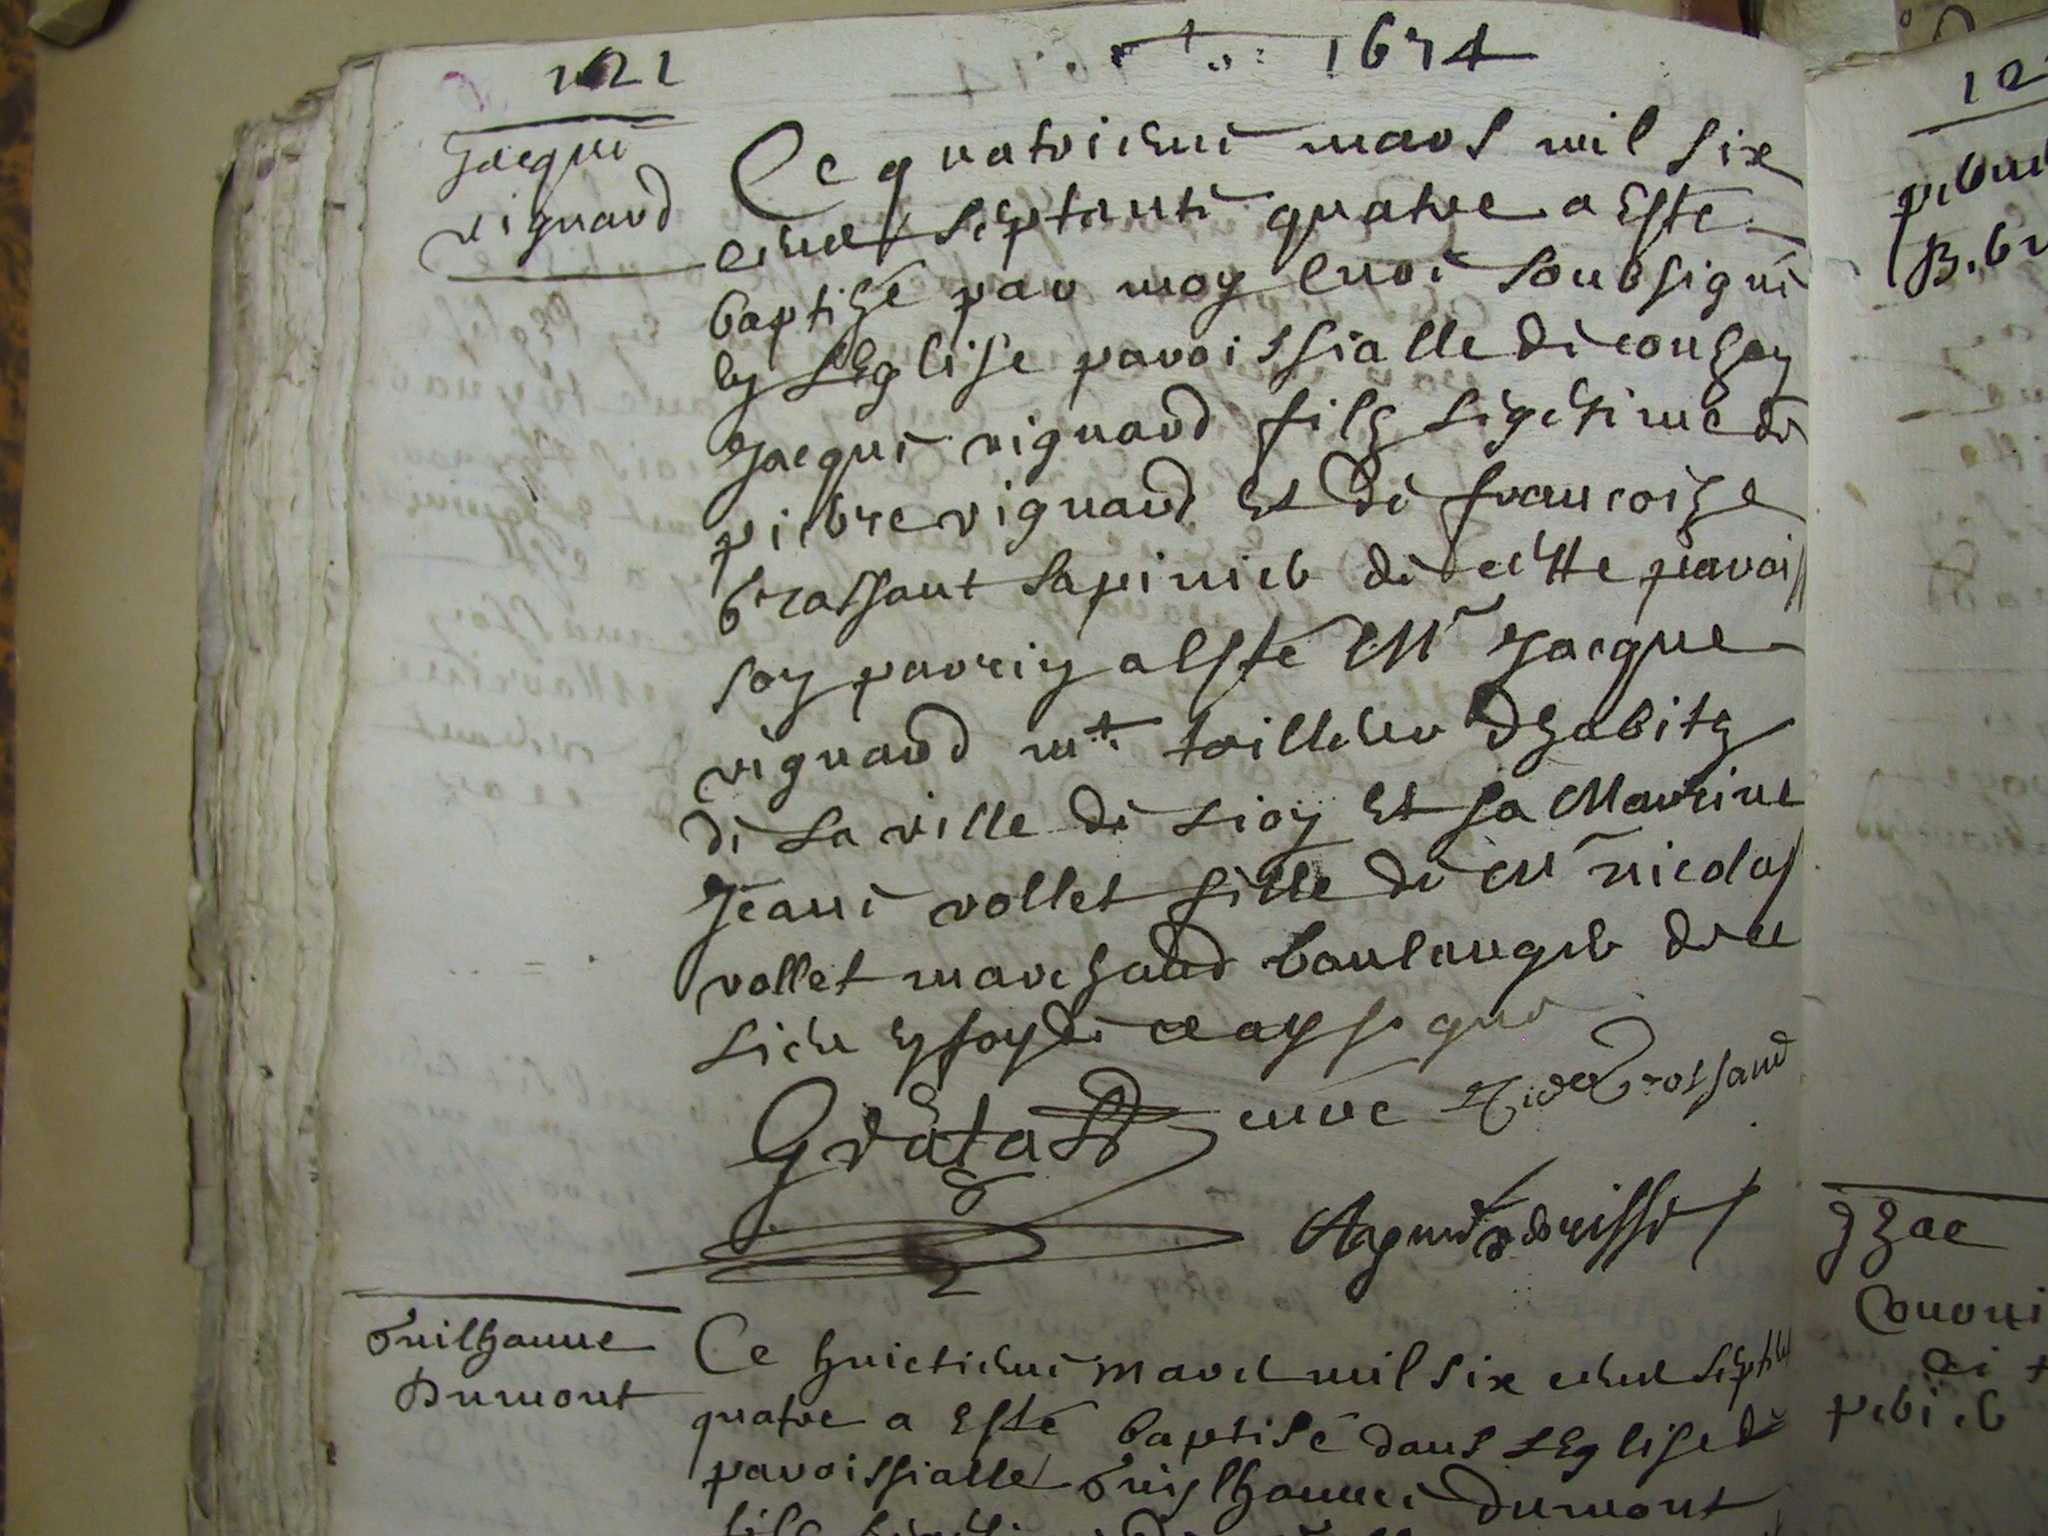 121
1674
Jacque
vignard
Ce quatrieme mars mil six
cent septante quatre a esté
baptizé par moy curé soubsigné
en L'Eglise paroissialle de couzon
Jacque vignard filz Ligitime de
pierre vignard et de francoize
brossant Sapinier de cette parois
son parrin a esté Mr Jacque
vignard mtre tailleur d'habitz
de La ville de Lion et sa Marrine
Jeane vollet fille de Mr nicolas
vollet marchand boulanger dud
Lieu en foy de ce ay signé
curé
brossand
Guilhaume
Dumont
Ce huictieme mars mil six cent septte
quatre a esté baptisé dans L'Eglise de
paroissialle Guilhaume dumont